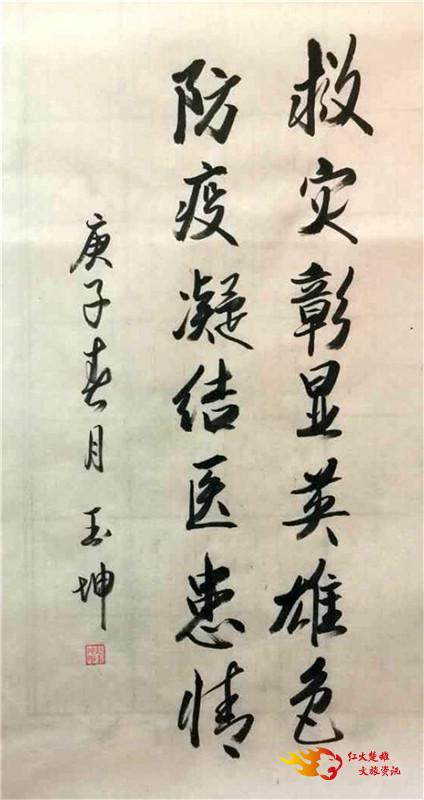 救灾彰显英雄色
防疫凝结医患情
庚子春月 玉坤
红火楚雄
文旅资讯